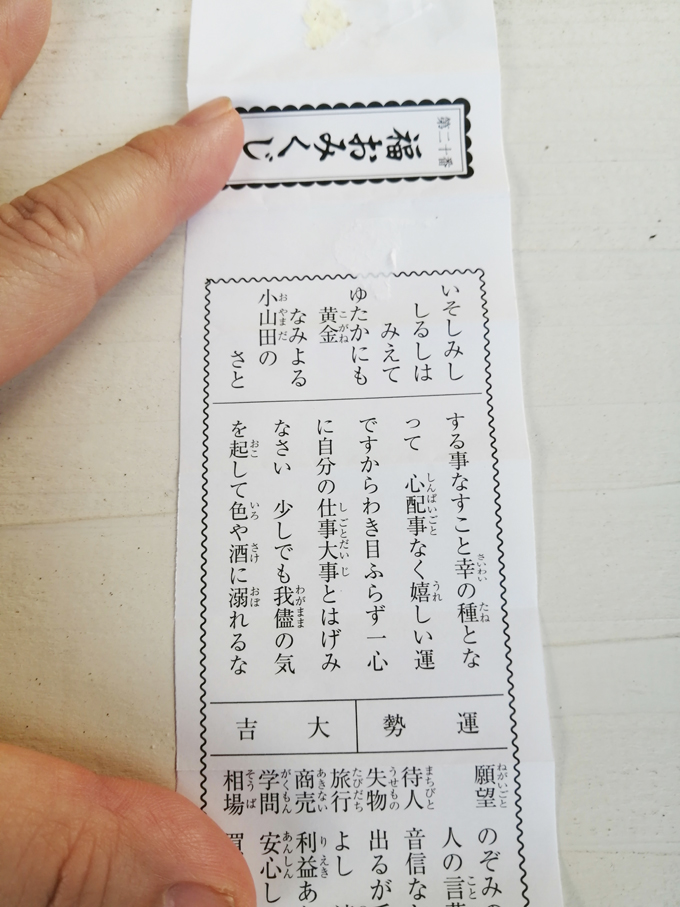 第二十番
福おみくじ
いそしみし
しるしは
みえて
ゆたかにも
黄金
なみよる
小山田の
さと
する事なすこと幸の種とな
って 心配事なく嬉しい運
ですからわき目ふらず一心
に自分の仕事大事とはげみ
なさい 少しでも我儘の気
を起して色や酒に溺れるな
運勢
大吉
願望 のぞみ
人の言葉
待人 音信な
失物 出るが
旅行 よし
商売 利益あ
学問 安心し
相場 買